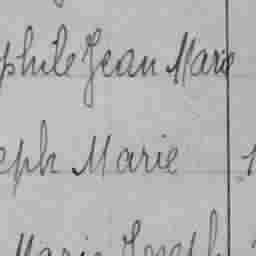 phile Jean Marie
eph Marie
Marie Joseph